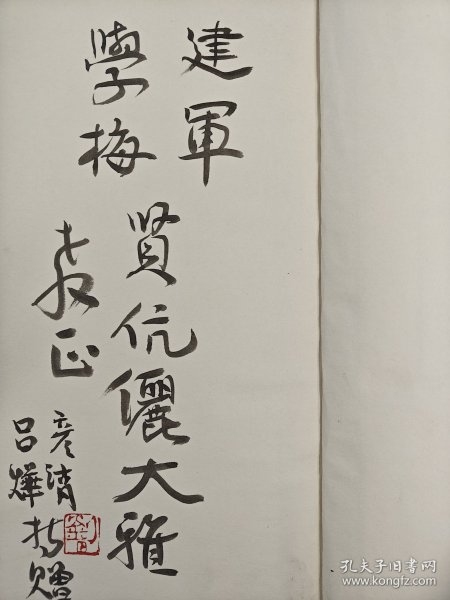 建軍
學梅
賢伉儷大雅
教正
彦清
吕燁
持贈
孔夫子旧书网
www.kongfz.com